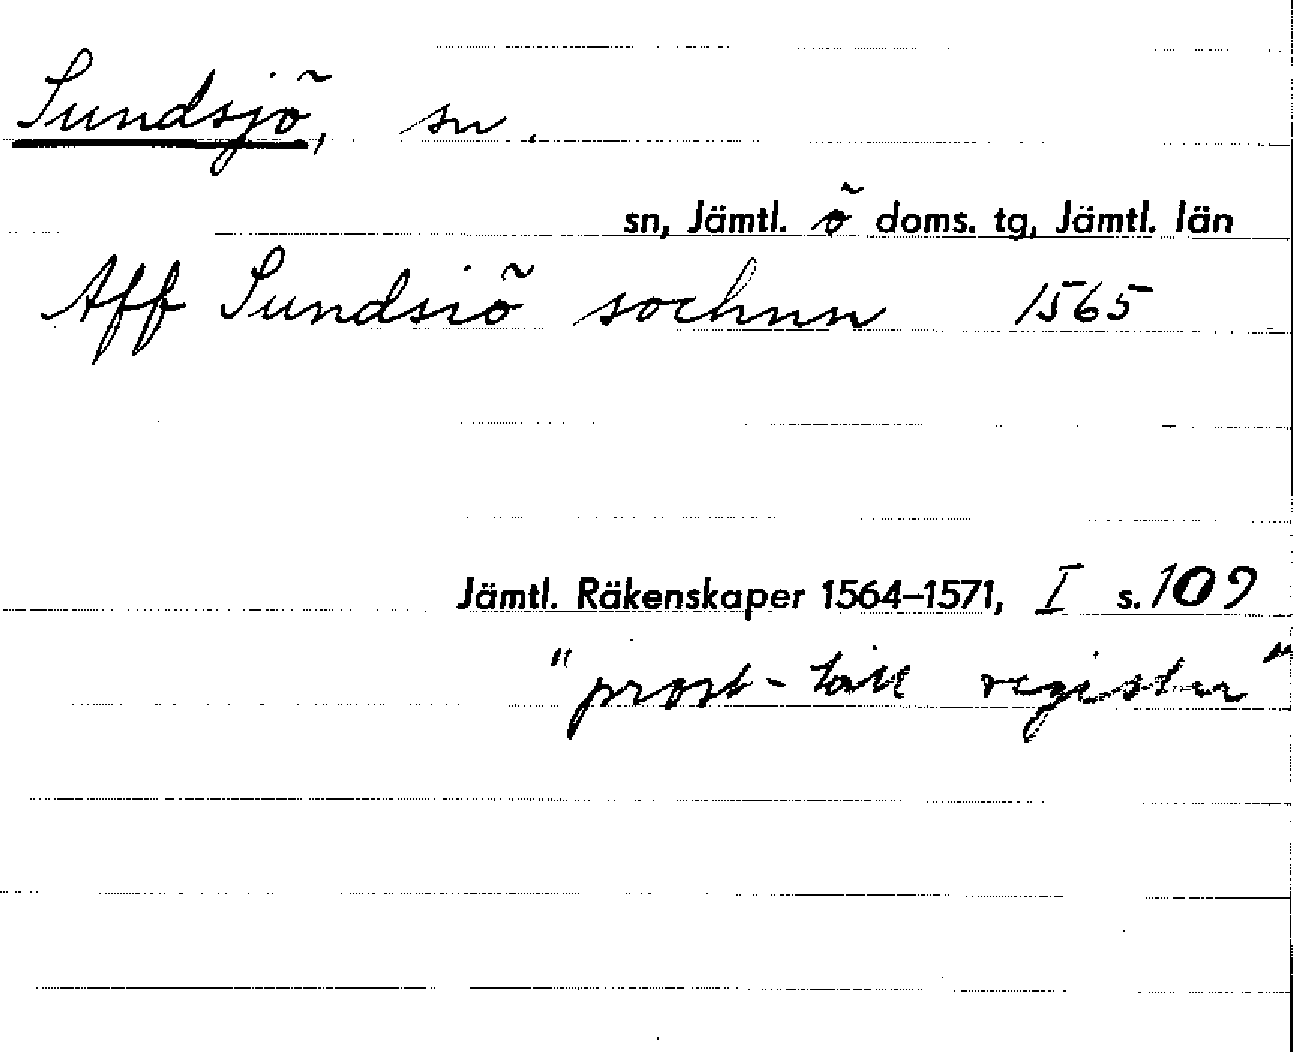 Sundsjö, sn.
sn, Jämtl. ö doms. tg, Jämtl. län
Aff Sundsiö sochnn 1565
Jämtl. Räkenskaper 1564–1571, I s. 109
"prost-tall register"